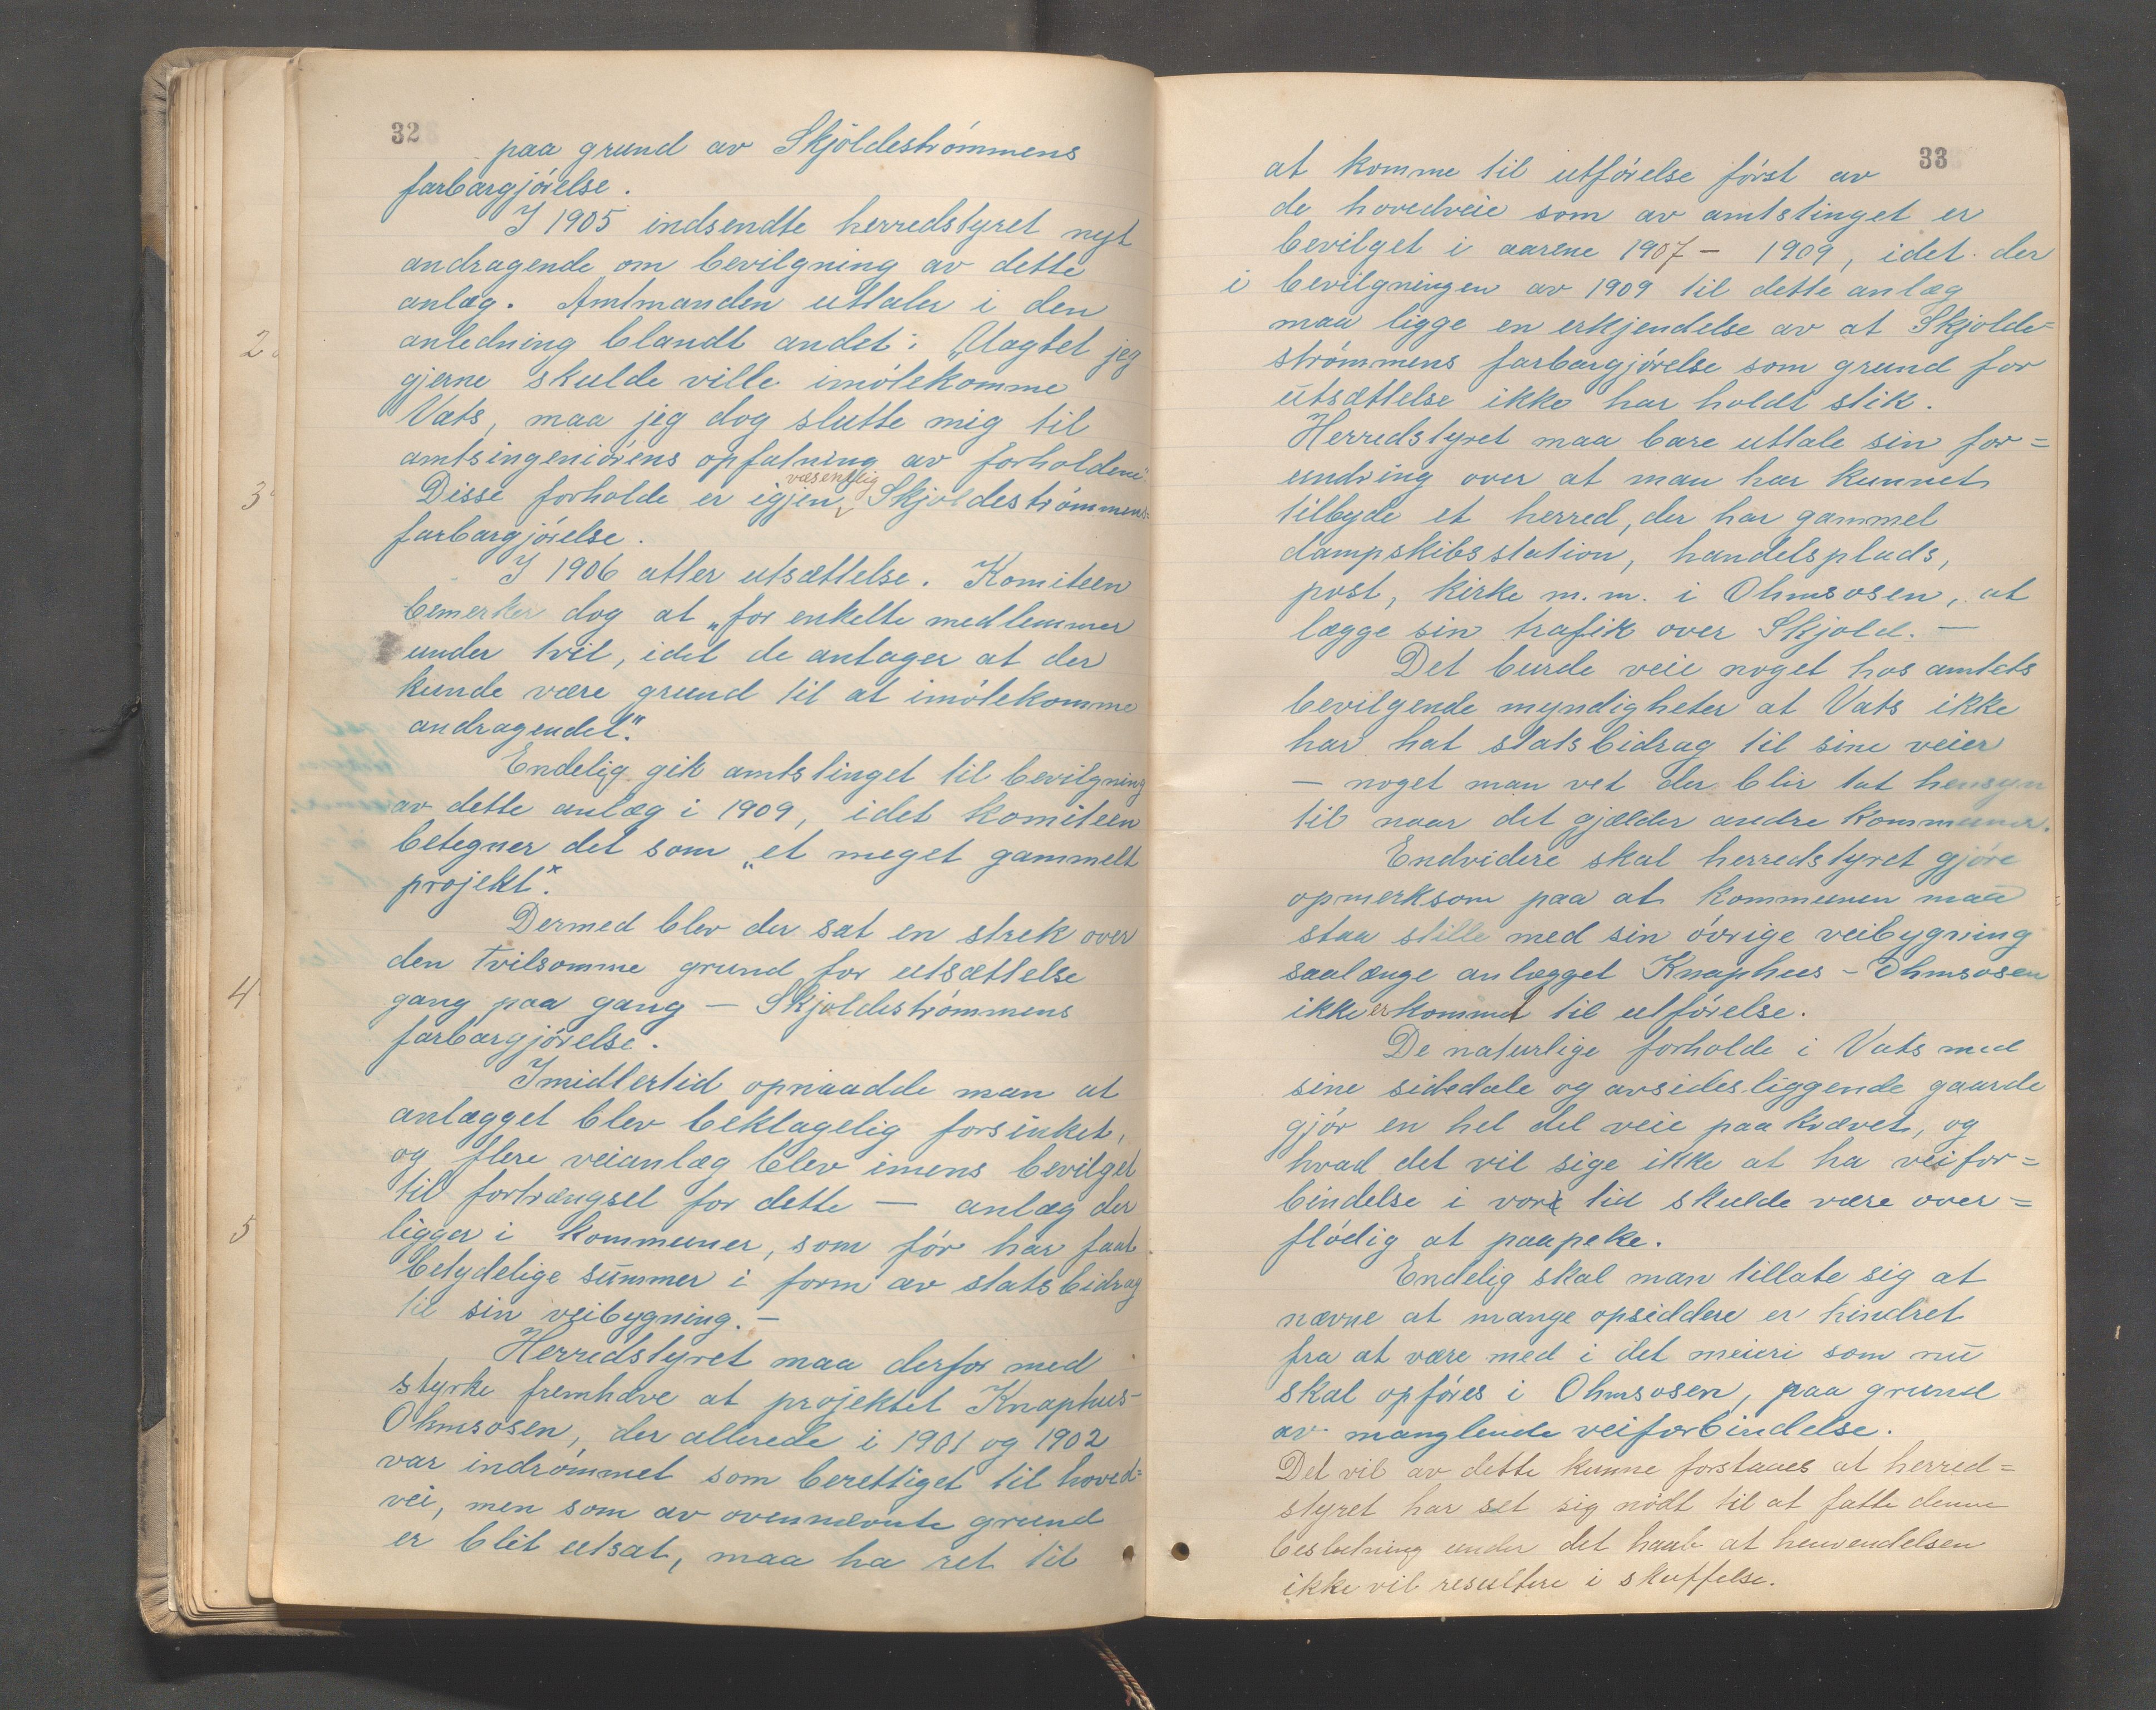 32
paa grund av Skjoldestrømmens
farbargjørelse.
I 1905 indsendte herredstyret nyt
andragende om bevilgning av dette
anlæg. Amtmanden uttaler i den
anledning blandt andet: „Uagtet jeg
gjerne skulde ville imøtekomme
Vats, maa jeg dog slutte mig til
amtsingeniørens opfatning av forholdene".
væsentlig
Disse forholde er igjen Skjoldestrømmens
farbargjørelse.
I 1906 atter utsættelse. Komiteen
bemerker dog at „for enkelte medlemmer
under tvil, idet de antager at der
kunde være grund til at imøtekomme
andragendet."
Endelig gik amtstinget til bevilgning
av dette anlæg i 1909, idet komiteen
betegner det som „et meget gammelt
projekt".
Dermed blev der sat en strek over
den tvilsomme grund for utsættelse
gang paa gang — Skjoldestrømmens
farbargjørelse.
Imidlertid opnaadde man at
anlægget blev beklagelig forsinket,
og flere veianlæg blev imens bevilget
til fortrængsel for dette — anlæg der
ligger i kommuner, som før har faat
betydelige summer i form av statsbidrag
til sin veibygning. —
Herredstyret maa derfor med
styrke fremhæve at projektet Knaphus-
Ohmsosen, der allerede i 1901 og 1902
var indrømmet som berettiget til hoved=
vei, men som av ovennævnte grund
er blit utsat, maa ha ret til
33
at komme til utførelse først av
de hovedveie som av amtstinget er
bevilget i aarene 1907 - 1909, idet der
i bevilgningen av 1909 til dette anlæg
maa ligge en erkjendelse av at Skjolde=
strømmens farbargjørelse som grund for
utsættelse ikke har holdt stik.
Herredstyret maa bare uttale sin for=
undring over at man har kunnet
tilbyde et herred, der har gammel
dampskibsstation, handelsplads,
post, kirke m. m. i Ohmsosen, at
lægge sin trafik over Skjold. —
Det burde veie noget hos amtets
bevilgende myndigheter at Vats ikke
har hat statsbidrag til sine veier
— noget man vet der blir tat hensyn
til naar det gjælder andre kommuner.
Endvidere skal herredstyret gjøre
opmerksom paa at kommunen maa
staa stille med sin øvrige veibygning
saalænge anlægget Knaphus - Ohmsosen
ikke er kommet til utførelse.
De naturlige forholde i Vats med
sine sidedale og avsidesliggende gaarde
gjør en hel del veie paakrævet, og
hvad det vil sige ikke at ha veifor=
bindelse i vor tid skulde være over=
flødig at paapeke.
Endelig skal man tillate sig at
nævne at mange opsiddere er hindret
fra at være med i det meieri som nu
skal opføres i Ohmsosen, paa grund
av manglende veiforbindelse.
Det vil av dette kunne forstaaes at herred=
styret har set sig nødt til at fatte denne
beslutning under det haab at henvendelsen
ikke vil resultere i skuffelse.
2
3
4
5